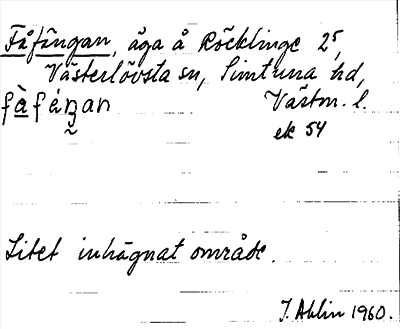 Fåfängan, äga å Röcklinge 2⁵,
Västerlövsta sn, Simtuna hd,
fà̱féŋan Västm. l.
ek 54
Litet inhägnat område.
J. Ahlin 1960.